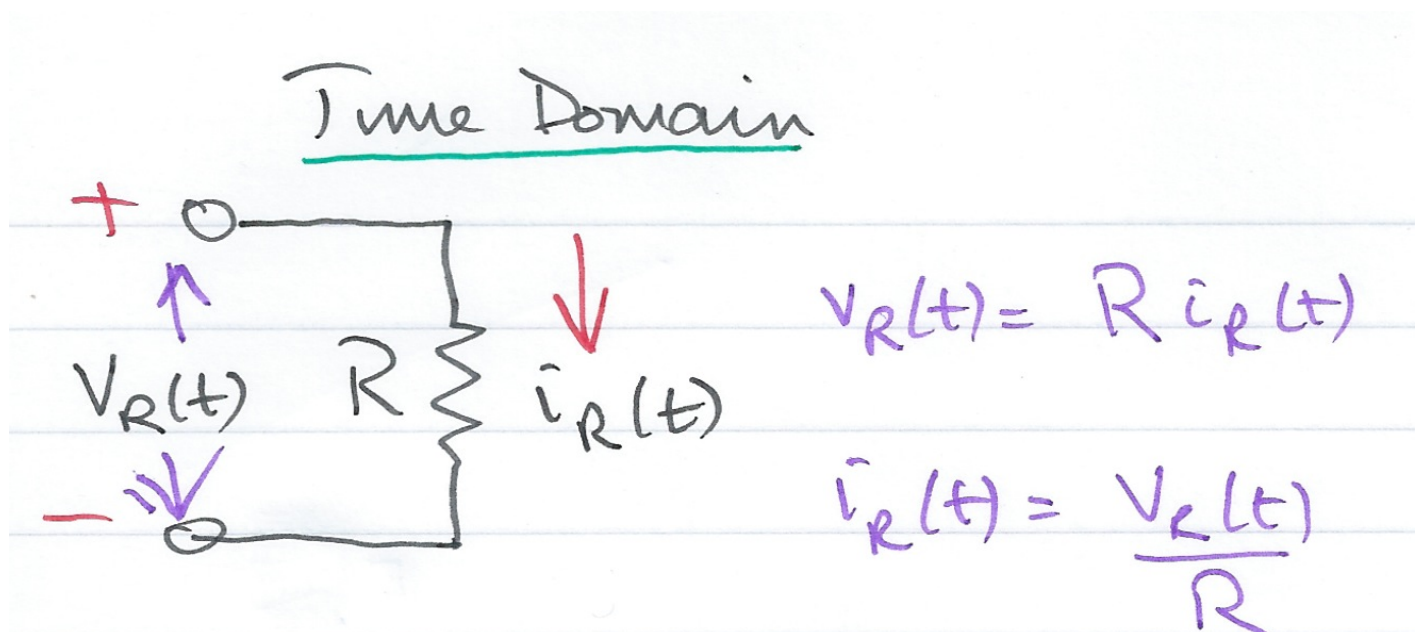 Time Domain
+
V_R(t) R i_R(t)
−
v_R(t) = R i_R(t)
i_R(t) = V_R(t)
R